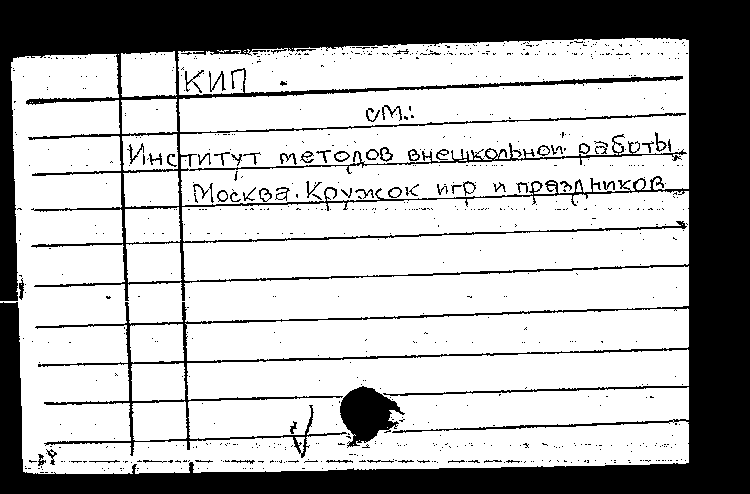 КИП
см.:
Институт методов внешкольной работы.
Москва. Кружок игр и праздников